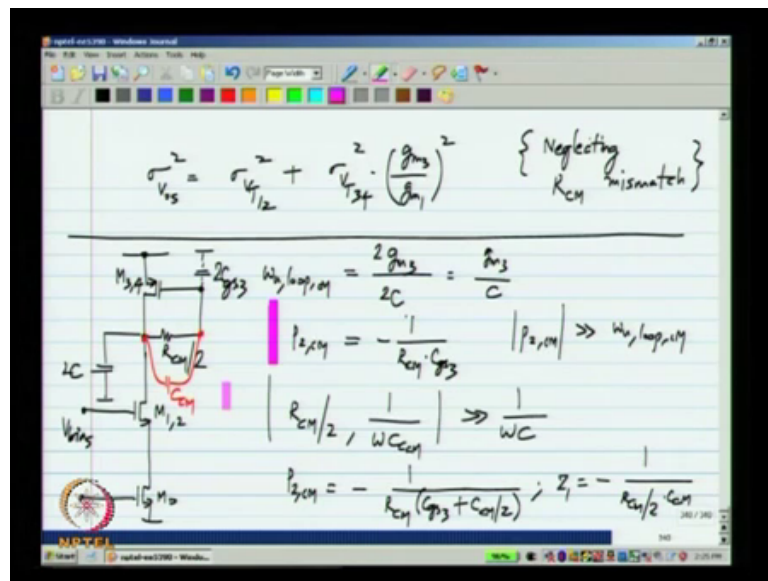 nptel-ee5390 - Windows Journal
File Edit View Insert Actions Tools Help
Page Width
σ²_Vos = σ²_VT12 + σ²_VT34 · (gm3/gm1)² { Neglecting R_CM mismatch }
M3,4 2Cgs3 ωu,loop,cm = 2gm3/2C = gm3/C
R_CM/2 P2,cm = - 1/(R_CM · Cgs3) |P2,cm| >> ωu,loop,cm
2C C_CM
Vbias M1,2 | R_CM/2 , 1/(ωC_CM) | >> 1/(ωC)
M0 P2,cm = - 1/(R_CM (Cgs3 + Ccm/2)) ; Z1 = - 1/(R_CM/2 · Ccm)
NPTEL
340
Start nptel-ee5390 - Windo... 2:25 PM